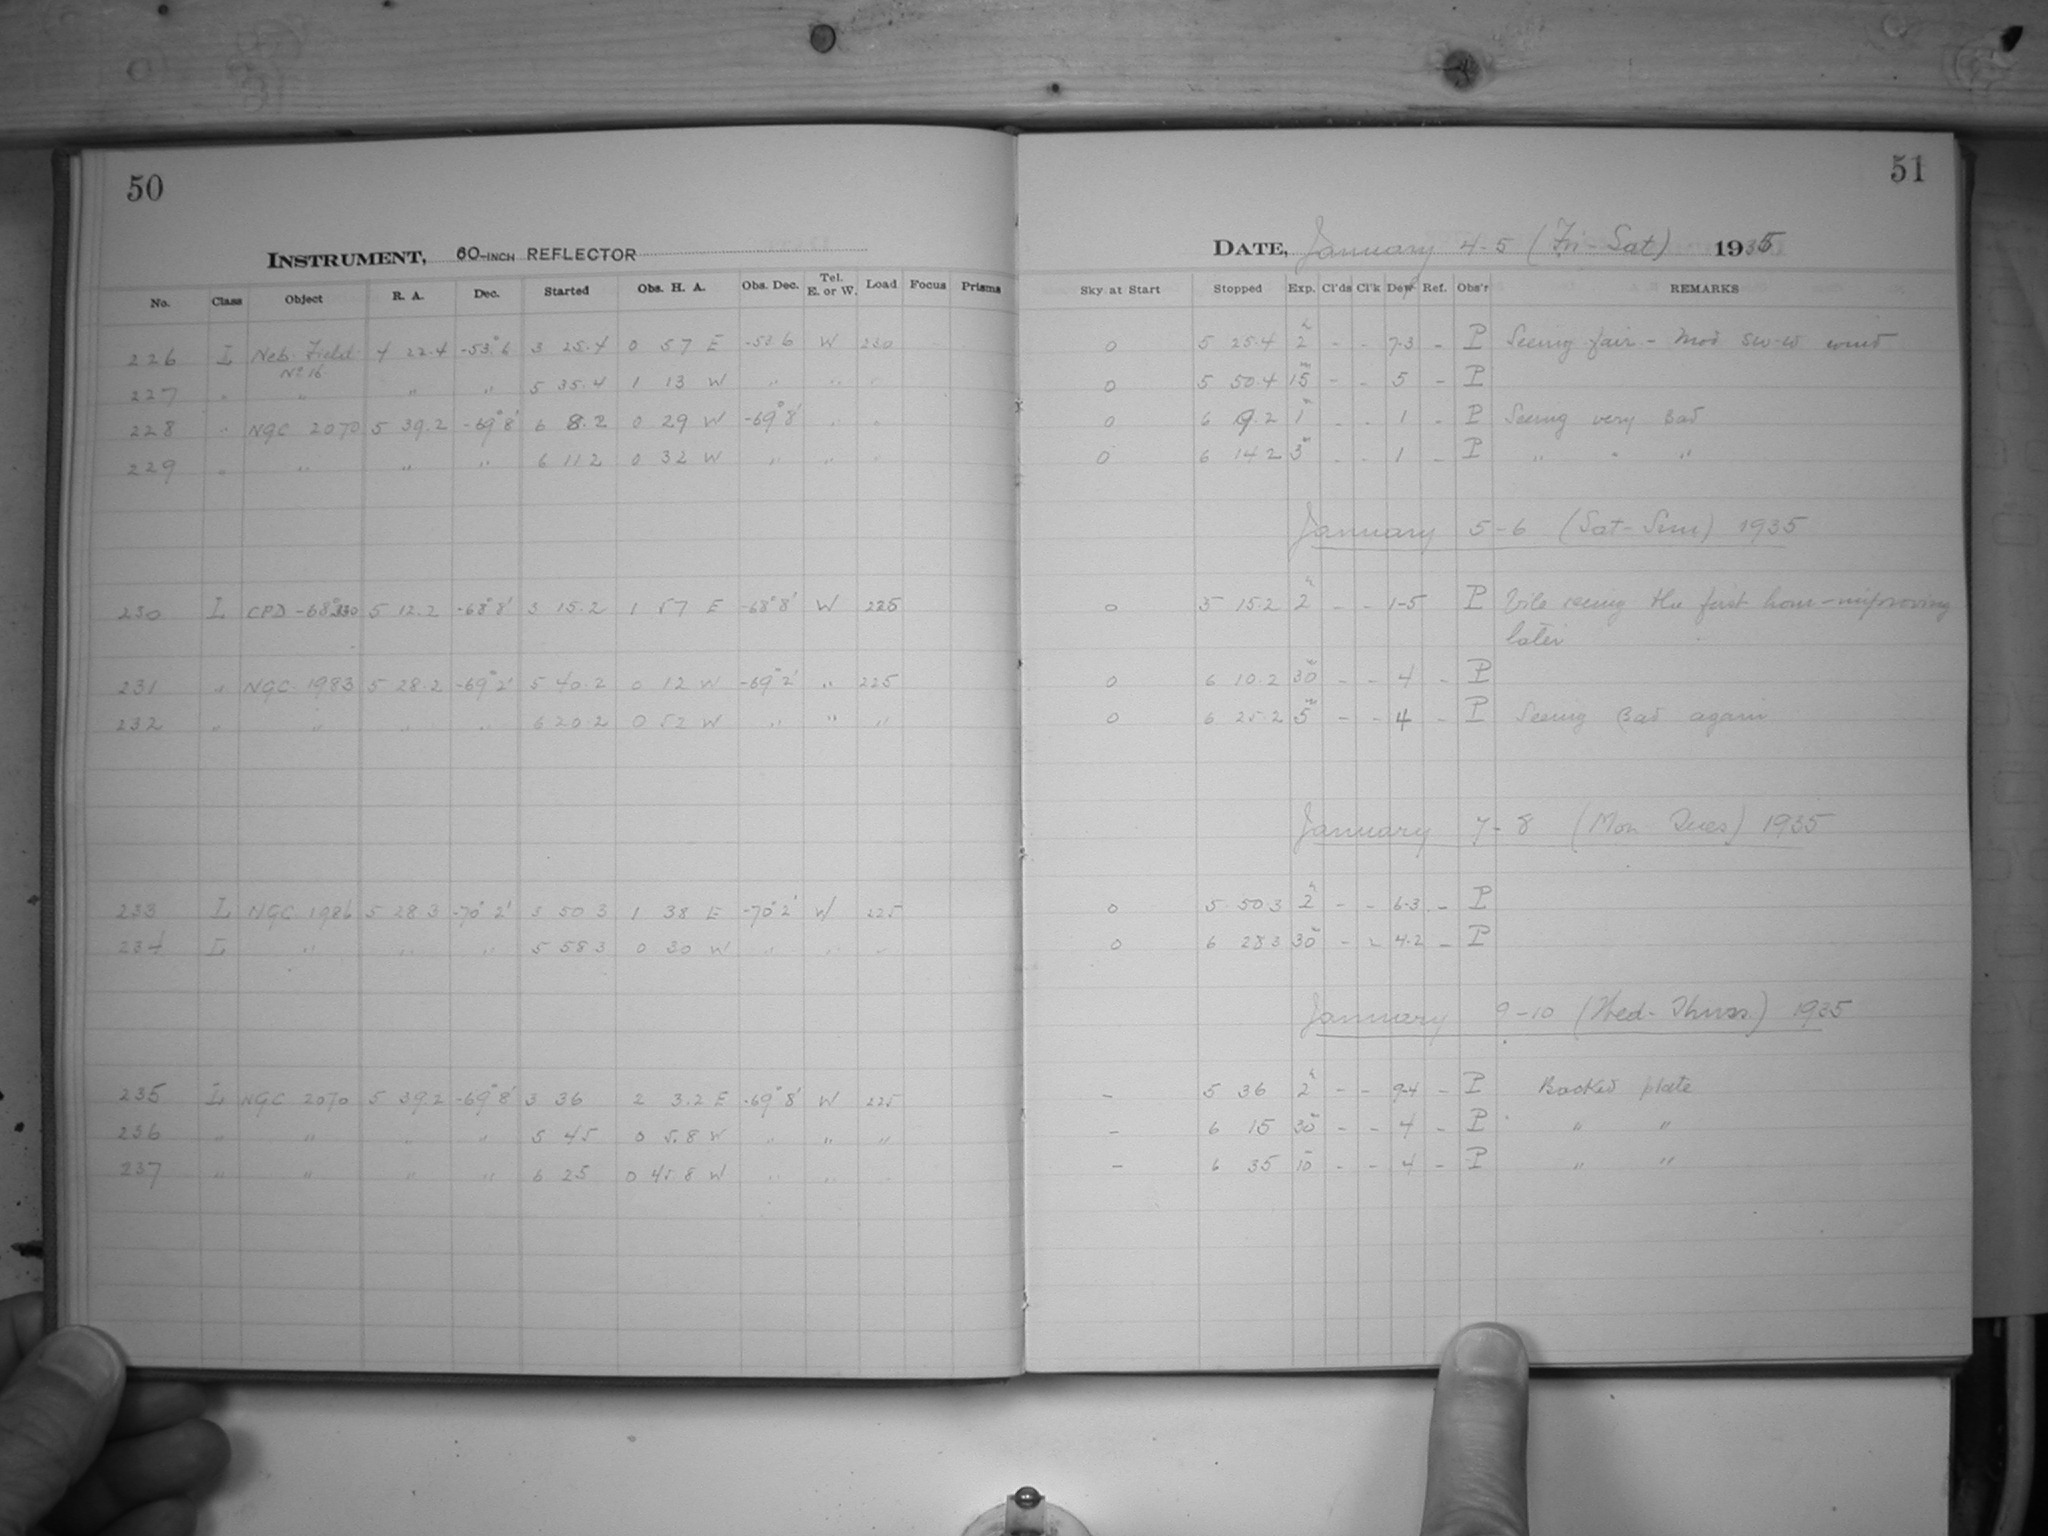 50
INSTRUMENT, 60-INCH REFLECTOR
No. Class Object R. A. Dec. Started Obs. H. A. Obs. Dec. Tel. E. or W. Load Focus Prisms
226 L Neb. Field 4 22.4 -53°6 3 25.4 0 57 E -53 6 W 230
No 16
227 " " " " 5 35.4 1 13 W " " "
228 " NGC 2070 5 39.2 -69°8' 6 8.2 0 29 W -69°8' " "
229 " " " " 6 11 2 0 32 W " " "
230 L CPD -68°330 5 12.2 -68°8' 3 15.2 1 57 E -68°8' W 225
231 " NGC 1983 5 28.2 -69°2' 5 40.2 0 12 W -69°2' " 225
232 " " " " 6 20.2 0 52 W " " "
233 L NGC 1986 5 28.3 -70°2' 3 50 3 1 38 E -70°2' W 225
234 L " " " 5 58 3 0 30 W " " "
235 L NGC 2070 5 39.2 -69°8' 3 36 2 3.2 E -69°8' W 225
236 " " " " 5 45 0 5.8 W " " "
237 " " " " 6 25 0 45 8 W " " "
51
DATE, January 4-5 (Fri-Sat) 1935
Sky at Start Stopped Exp. Cl'ds Cl'k Dew Ref. Obs'r REMARKS
0 5 25.4 2h - - 7-3 - P Seeing fair - Mod SW-W wind
0 5 50.4 15m - - 5 - P
0 6 9.2 1m - - 1 - P Seeing very Bad
0 6 14 2 3m - - 1 - P " " "
January 5-6 (Sat-Sun) 1935
0 5 15.2 2h - - 1-5 P Vile seeing the first hour - improving
later
0 6 10.2 30m - - 4 - P
0 6 25.2 5m - - 4 - P Seeing Bad again
January 7-8 (Mon Tues) 1935
0 5 50 3 2h - - 6-3 - P
0 6 28 3 30m - - 4.2 - P
January 9-10 (Wed-Thurs) 1935
- 5 36 2h - - 9-4 - P Backed plate
- 6 15 30m - - 4 - P " "
- 6 35 10m - - 4 - P " "